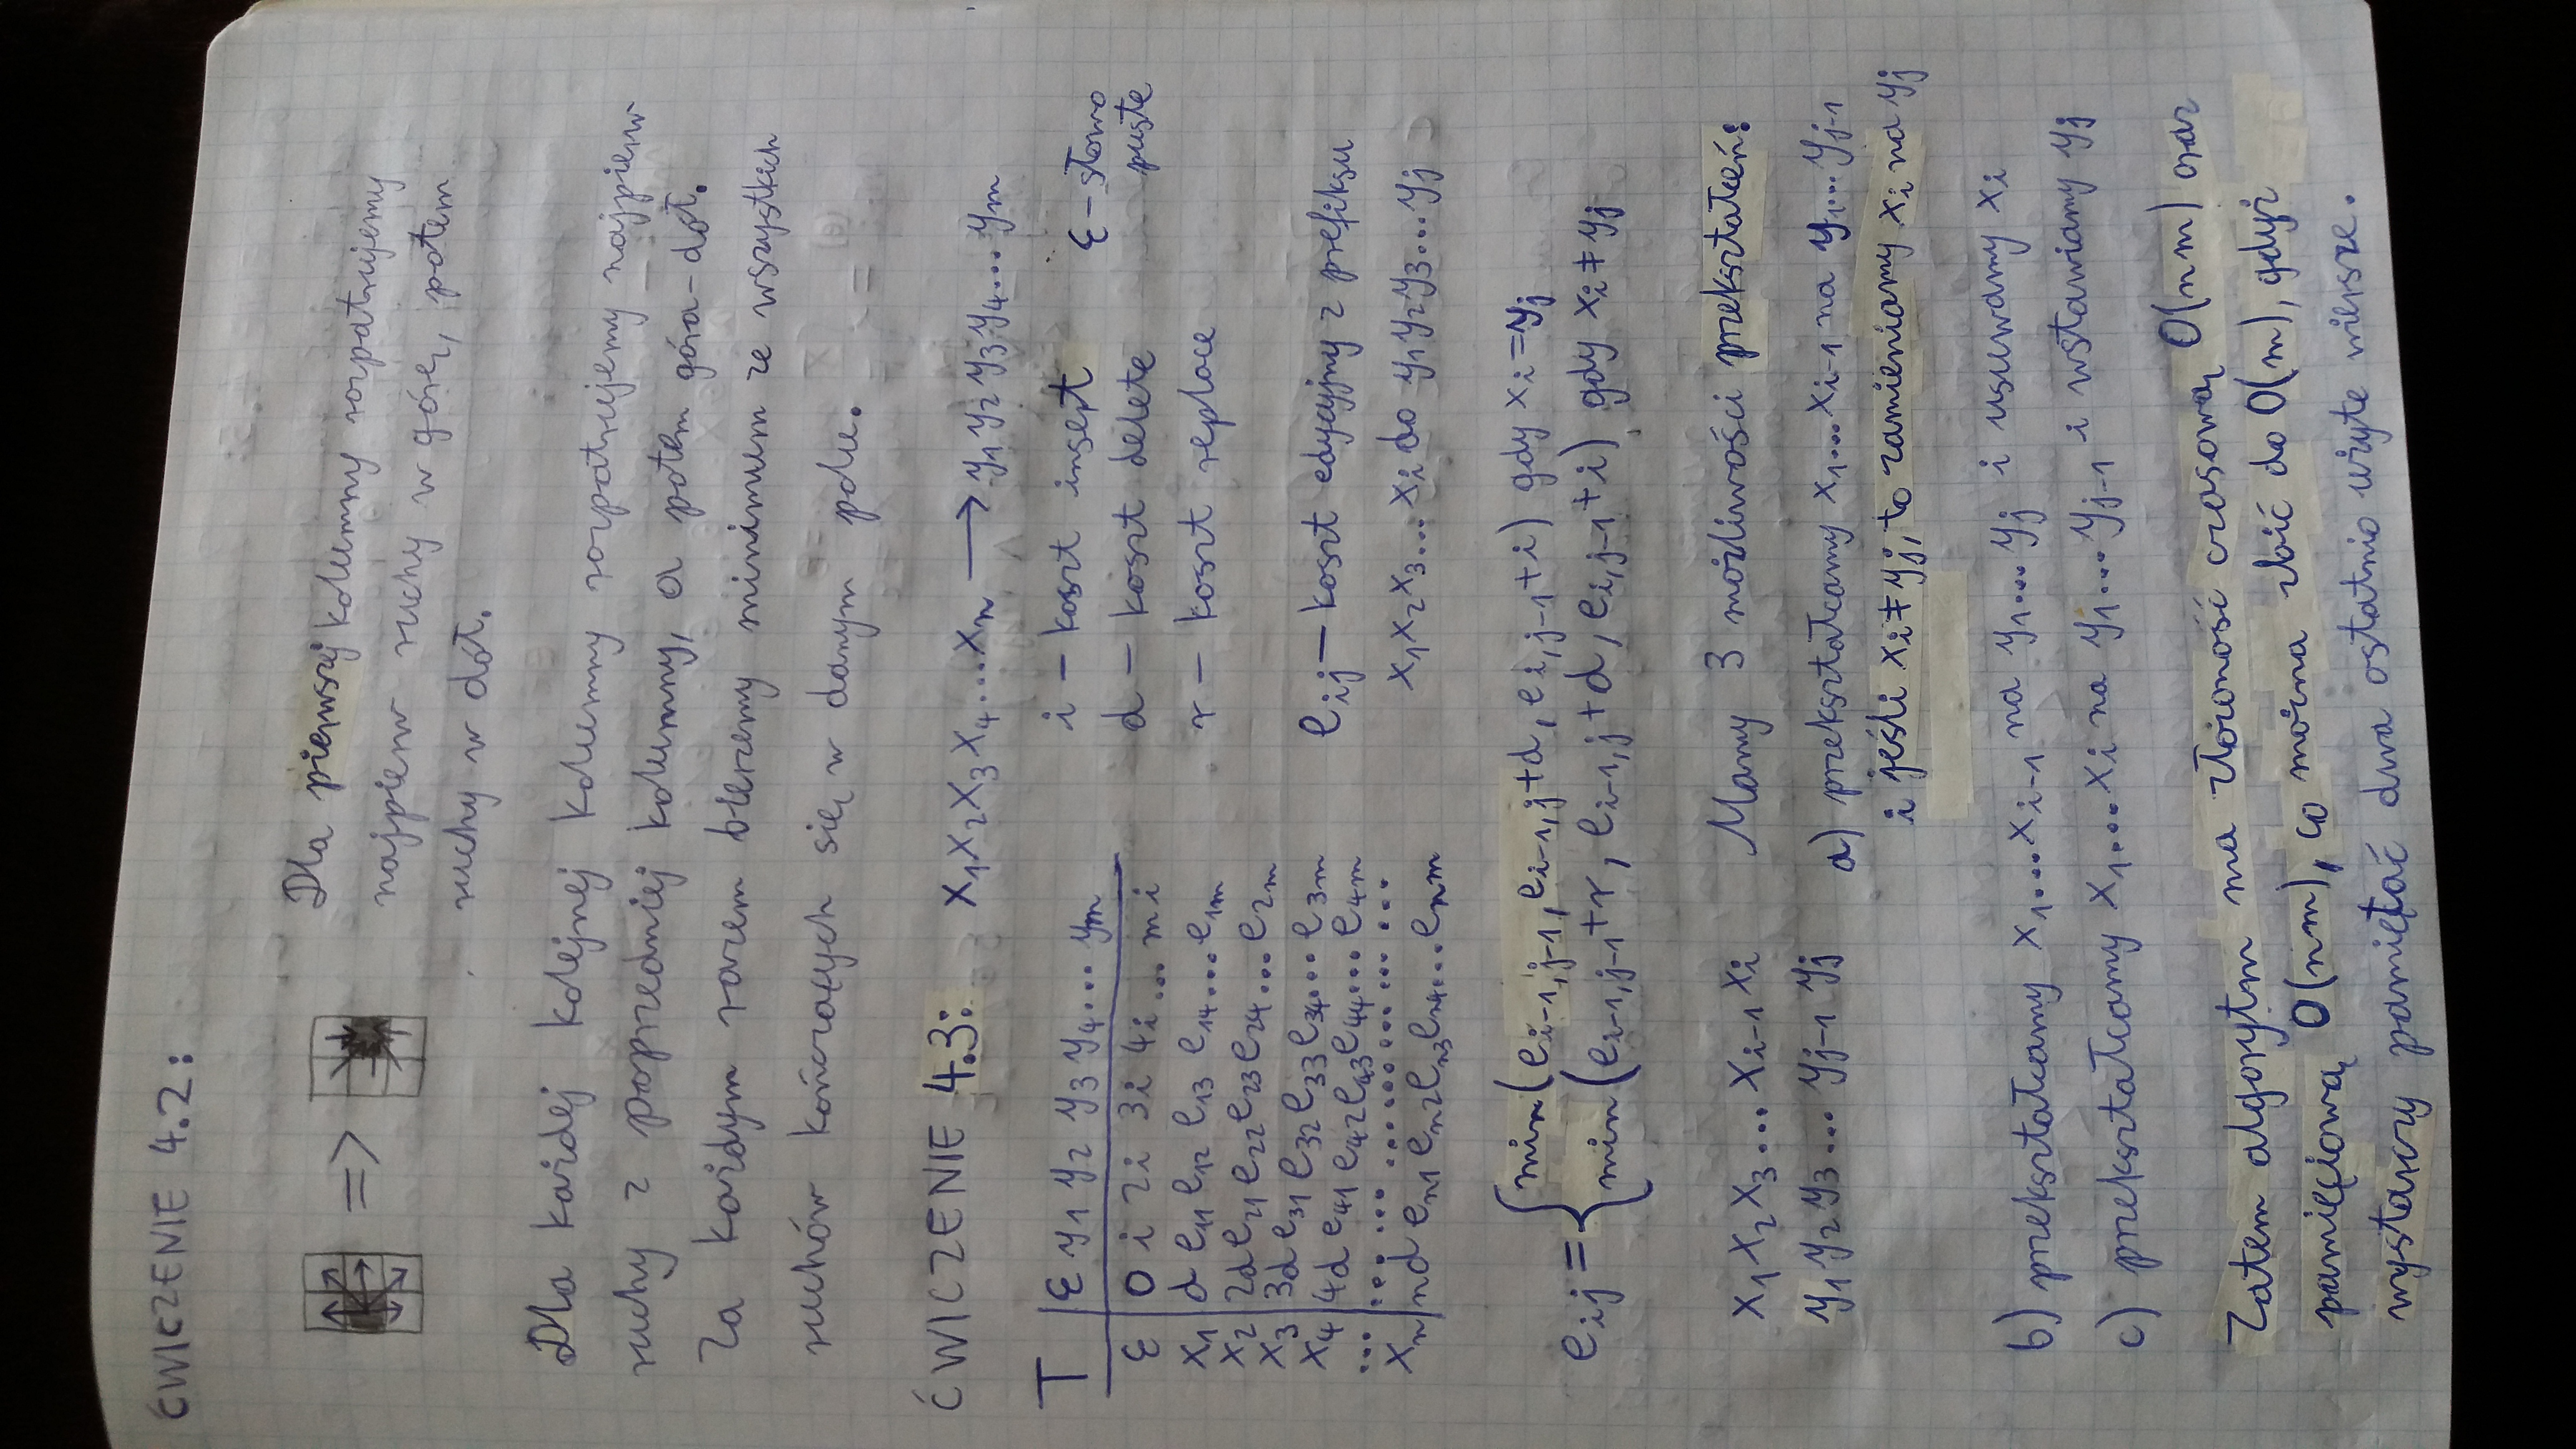 ĆWICZENIE 4.2:
=>
Dla pierwszej kolumny rozpatrujemy
najpierw ruchy w górę, potem
ruchy w dół.
Dla każdej kolejnej kolumny rozpatrujemy najpierw
ruchy z poprzedniej kolumny, a potem góra-dół.
Za każdym razem bierzemy minimum ze wszystkich
ruchów kończących się w danym polu.
ĆWICZENIE 4.3: x₁x₂x₃x₄...xₙ → y₁y₂y₃y₄...yₘ
T | ε y₁ y₂ y₃ y₄ ... yₘ
ε | 0 i 2i 3i 4i ... mi
x₁ | d e₁₁ e₁₂ e₁₃ e₁₄ ... e₁ₘ
x₂ | 2d e₂₁ e₂₂ e₂₃ e₂₄ ... e₂ₘ
x₃ | 3d e₃₁ e₃₂ e₃₃ e₃₄ ... e₃ₘ
x₄ | 4d e₄₁ e₄₂ e₄₃ e₄₄ ... e₄ₘ
... | ... ... ... ... ... ... ...
xₙ | nd eₙ₁ eₙ₂ eₙ₃ eₙ₄ ... eₙₘ
i – koszt insert
d – koszt delete
r – koszt replace
ε – słowo
puste
e_ij – koszt edycyjny z prefiksu
x₁x₂x₃...x_i do y₁y₂y₃...y_j
e_ij = { min(e_{i-1,j-1}, e_{i-1,j}+d, e_{i,j-1}+i) gdy x_i = y_j
min(e_{i-1,j-1}+r, e_{i-1,j}+d, e_{i,j-1}+i) gdy x_i ≠ y_j
x₁x₂x₃...x_{i-1} x_i
y₁y₂y₃...y_{j-1} y_j
Mamy 3 możliwości przekształceń:
a) przekształcamy x₁...x_{i-1} na y₁...y_{j-1}
i jeśli x_i ≠ y_j, to zamieniamy x_i na y_j
b) przekształcamy x₁...x_{i-1} na y₁...y_j i usuwamy x_i
c) przekształcamy x₁...x_i na y₁...y_{j-1} i wstawiamy y_j
Zatem algorytm ma złożoność czasową O(nm) oraz
pamięciową O(nm), co można zbić do O(m), gdyż
wystarczy pamiętać dwa ostatnio użyte wiersze.